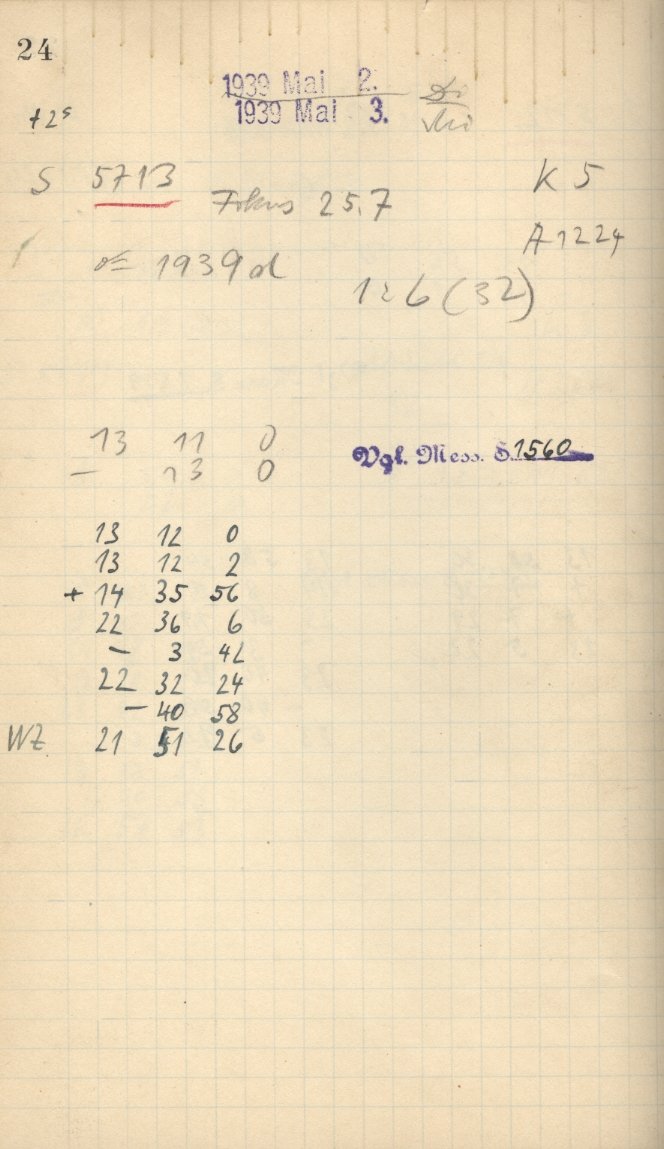 24
1939 Mai 2. Di
1939 Mai 3. Mi
+2ˢ
S 5713 Fokus 25.7 K 5
A 1224
☄ 1939 d
1:6 (32)
13 11 0
– 13 0
Vgl. Mess. S. 1560
13 12 0
13 12 2
+ 14 35 56
22 36 6
– 3 42
22 32 24
– 40 58
WZ 21 51 26